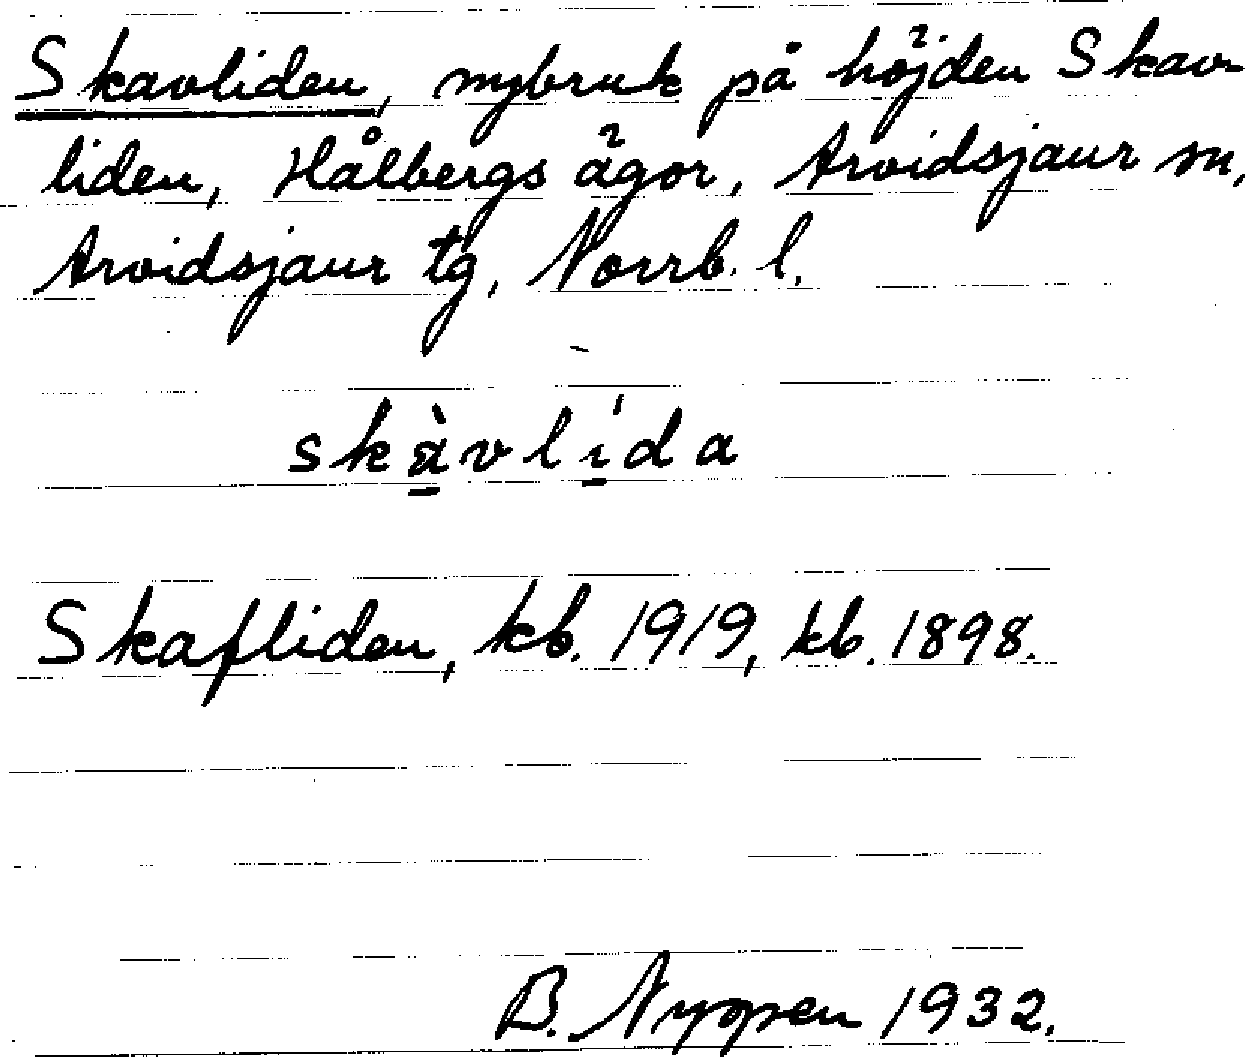 Skavliden, nybruk på höjden Skav-
liden, Hålbergs ägor, Arvidsjaur sn,
Arvidsjaur tg, Norrb. l.
skàvlída
Skafliden, kb. 1919, kb. 1898.
B. 1932.